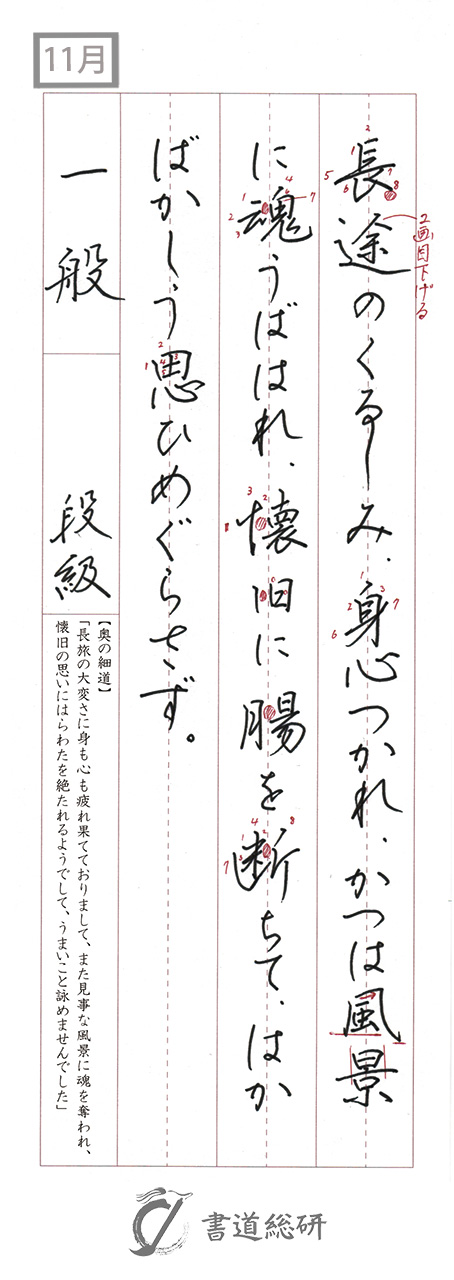 11月
長途のくるしみ、身心つかれ、かつは風景
2画目下げる
に魂うばはれ、懐旧に腸を断ちて、はか
ばかしう思ひめぐらさず。
一般 段級
【奥の細道】
「長旅の大変さに身も心も疲れ果てておりまして、また見事な風景に魂を奪われ、
懐旧の思いにはらわたを絶たれるようでして、うまいこと詠めませんでした」
書道総研